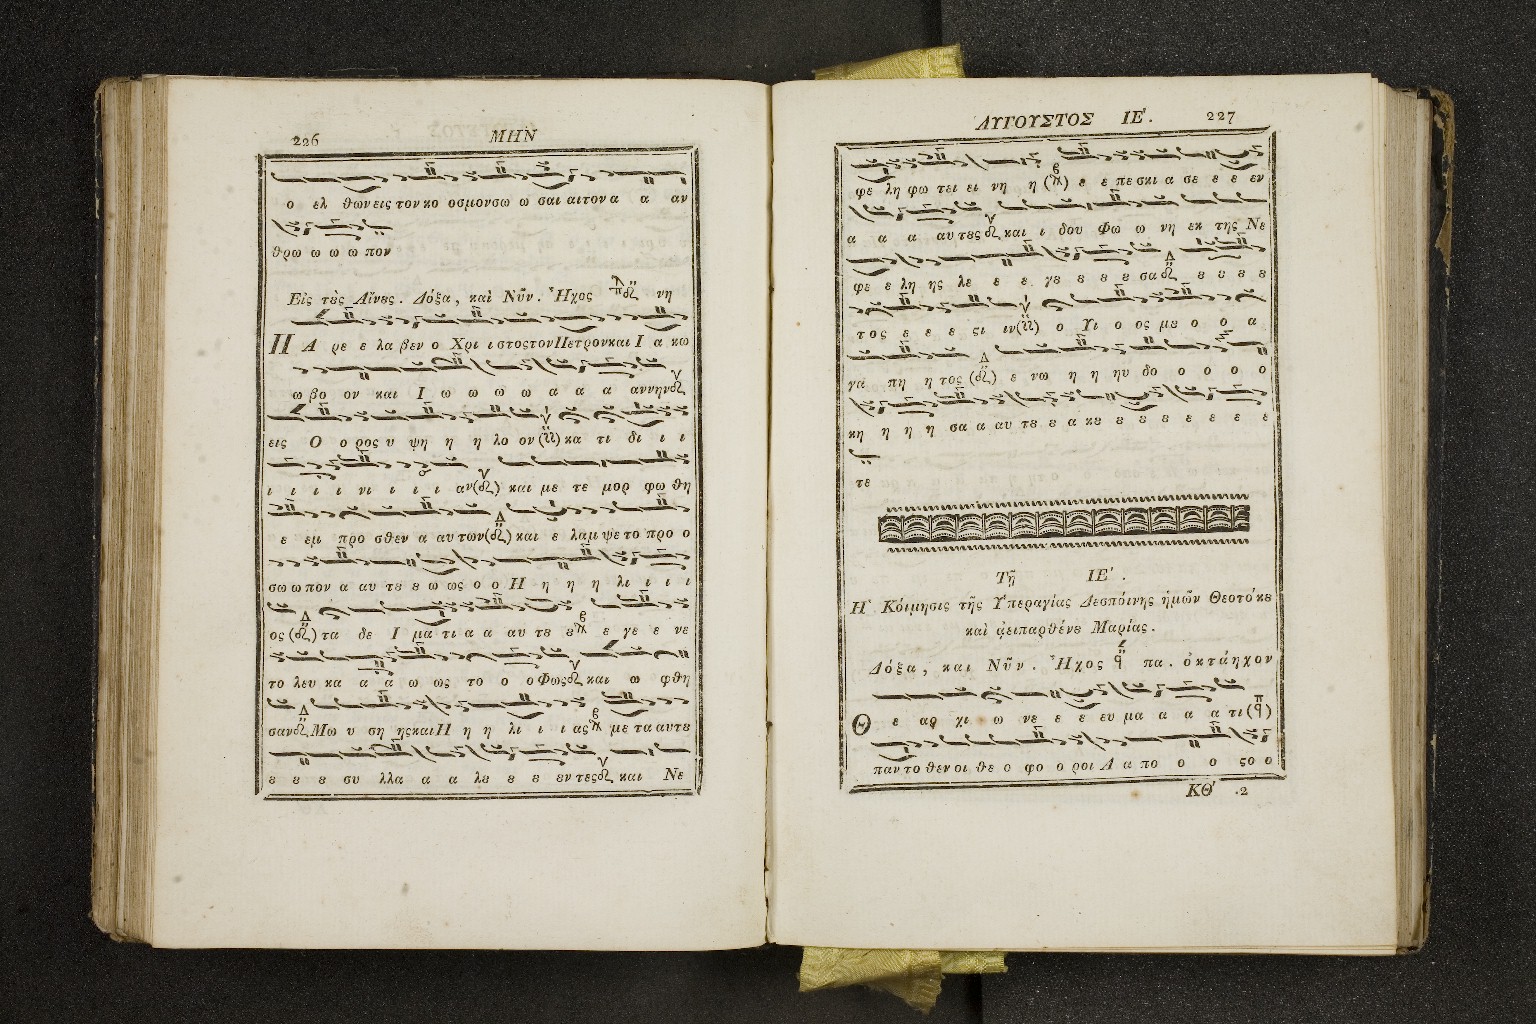 226 ΜΗΝ
ο ελ θων εις τον κο οσμον σω ω σαι αι τον α α αν
θρω ω ω ω πον
Εἰς τὲς Αἴνες. Δόξα, καὶ Νῦν. Ἦχος νη
ΠΑ ρε ε λα βεν ο Χρι ι στος τον Πετρον και Ι α κω
ω βο ον και Ι ω ω ω ω α α α αν νην
εις Ο ο ρος υ ψη η η λο ον κα τι δι ι ι
ι ι ι ι νι ι ι ι αν και με τε μορ φω θη
ε εμ προ σθεν α αυ των και ε λαμ ψε το προ ο
σω ω πον α αυ τ8 8 ω ως ο ο Η η η η λι ι ι ι
ος τα δε Ι μα τι α α αυ τ8 8 ε γε ε νε
το λευ κα α α ω ως το ο ο Φως και ω φθη
σαν Μω υ ση ης και Η η η λι ι ι ας με τα αυτ8
8 8 8 συ λλα α α λ8 8 8 εν τες και Νε
ΑΥΓΟΥΣΤΟΣ ΙΕ'. 227
φε λη φω τει ει νη η ε ε πε σκι α σε ε ε εν
α α α αυ τ8ς και ι δου Φω ω νη εκ της Νε
φε ε λη ης λε ε ε γ8 8 8 8 σα 8 8 8 8
τος ε ε ε ςι ιν ο Υι ο ος μ8 ο ο α
γα πη η τος ε νω η η ηυ δο ο ο ο ο
κη η η η σα α αυ τ8 8 α κ8 8 8 8 ε ε ε ε
τε
Τῇ ΙΕ'.
Η' Κόιμησις τῆς Ὑπεραγίας Δεσπόινης ἡμῶν Θεοτόκ8
καὶ ἀειπαρθέν8 Μαρίας.
Δόξα, και Νῦν. Ἦχος πα. ὀκτάηχον
Θ ε αρ χι ω νε ε ε ευ μα α α α τι
παν το θεν οι θε ο φο ο ροι Α α πο ο ο ςο ο
ΚΘ' .2